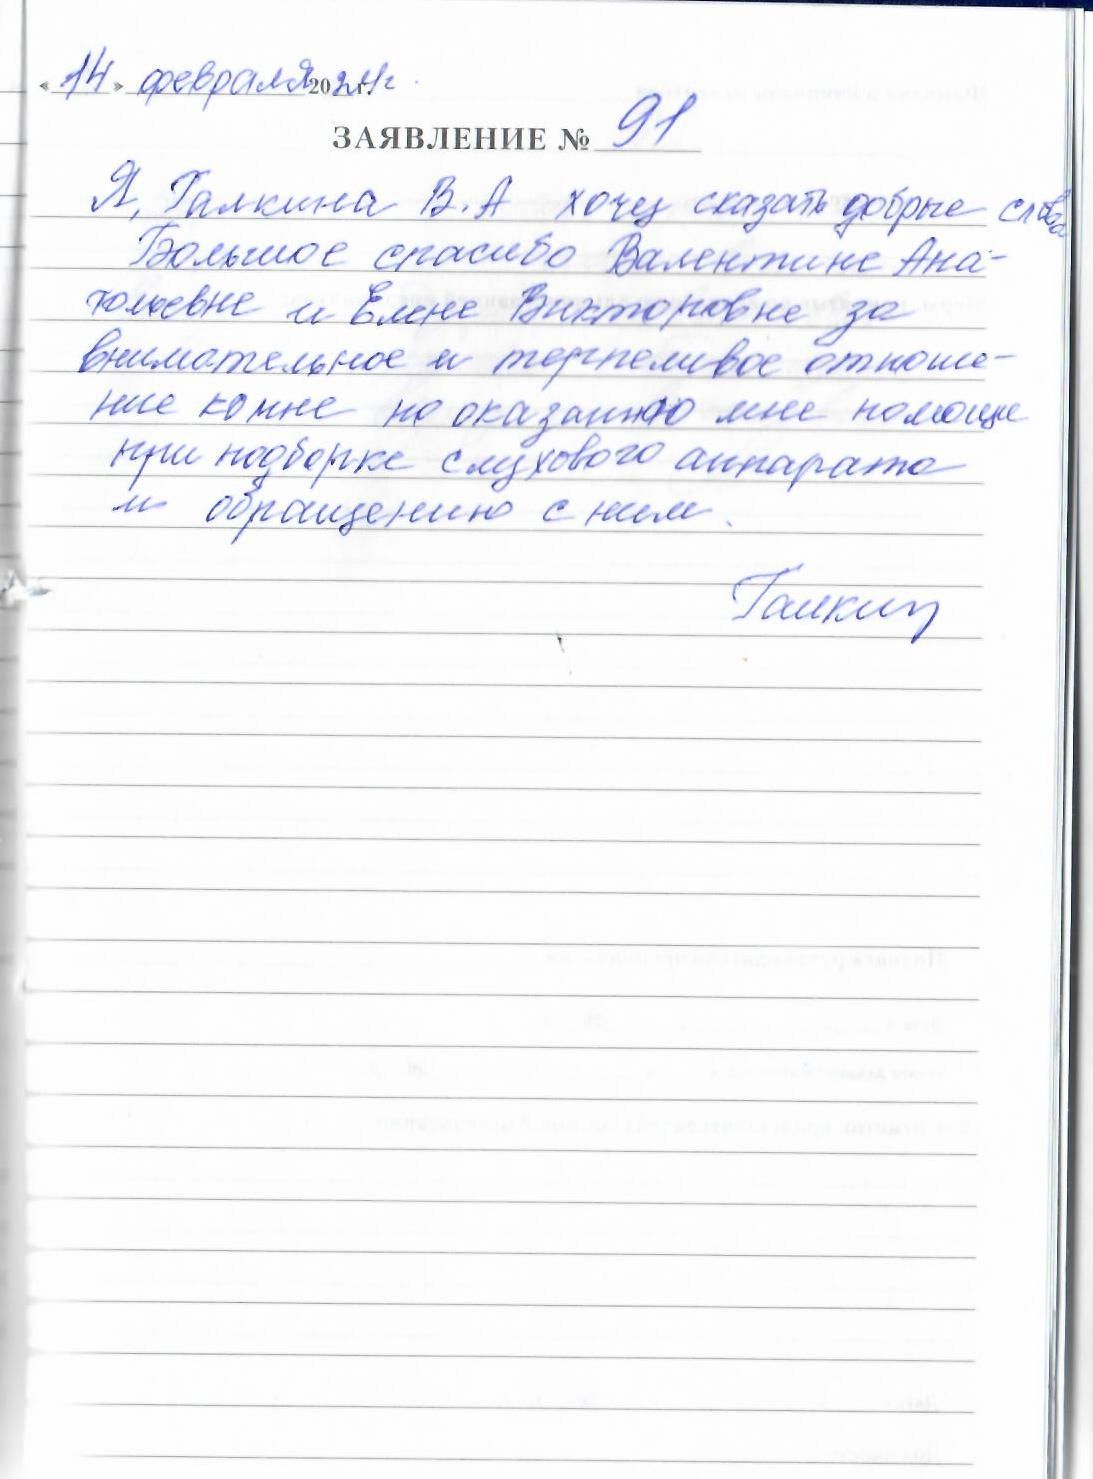 «14» февраля 2024 г.
ЗАЯВЛЕНИЕ № 91
Я, Галкина В.А хочу сказать добрые слова
Большое спасибо Валентине Ана-
тольевне и Елене Викторовне за
внимательное и терпеливое отноше-
ние ко мне по оказанию мне помощи
при подборке слухового аппарата
и обращению с ним.
Галкин